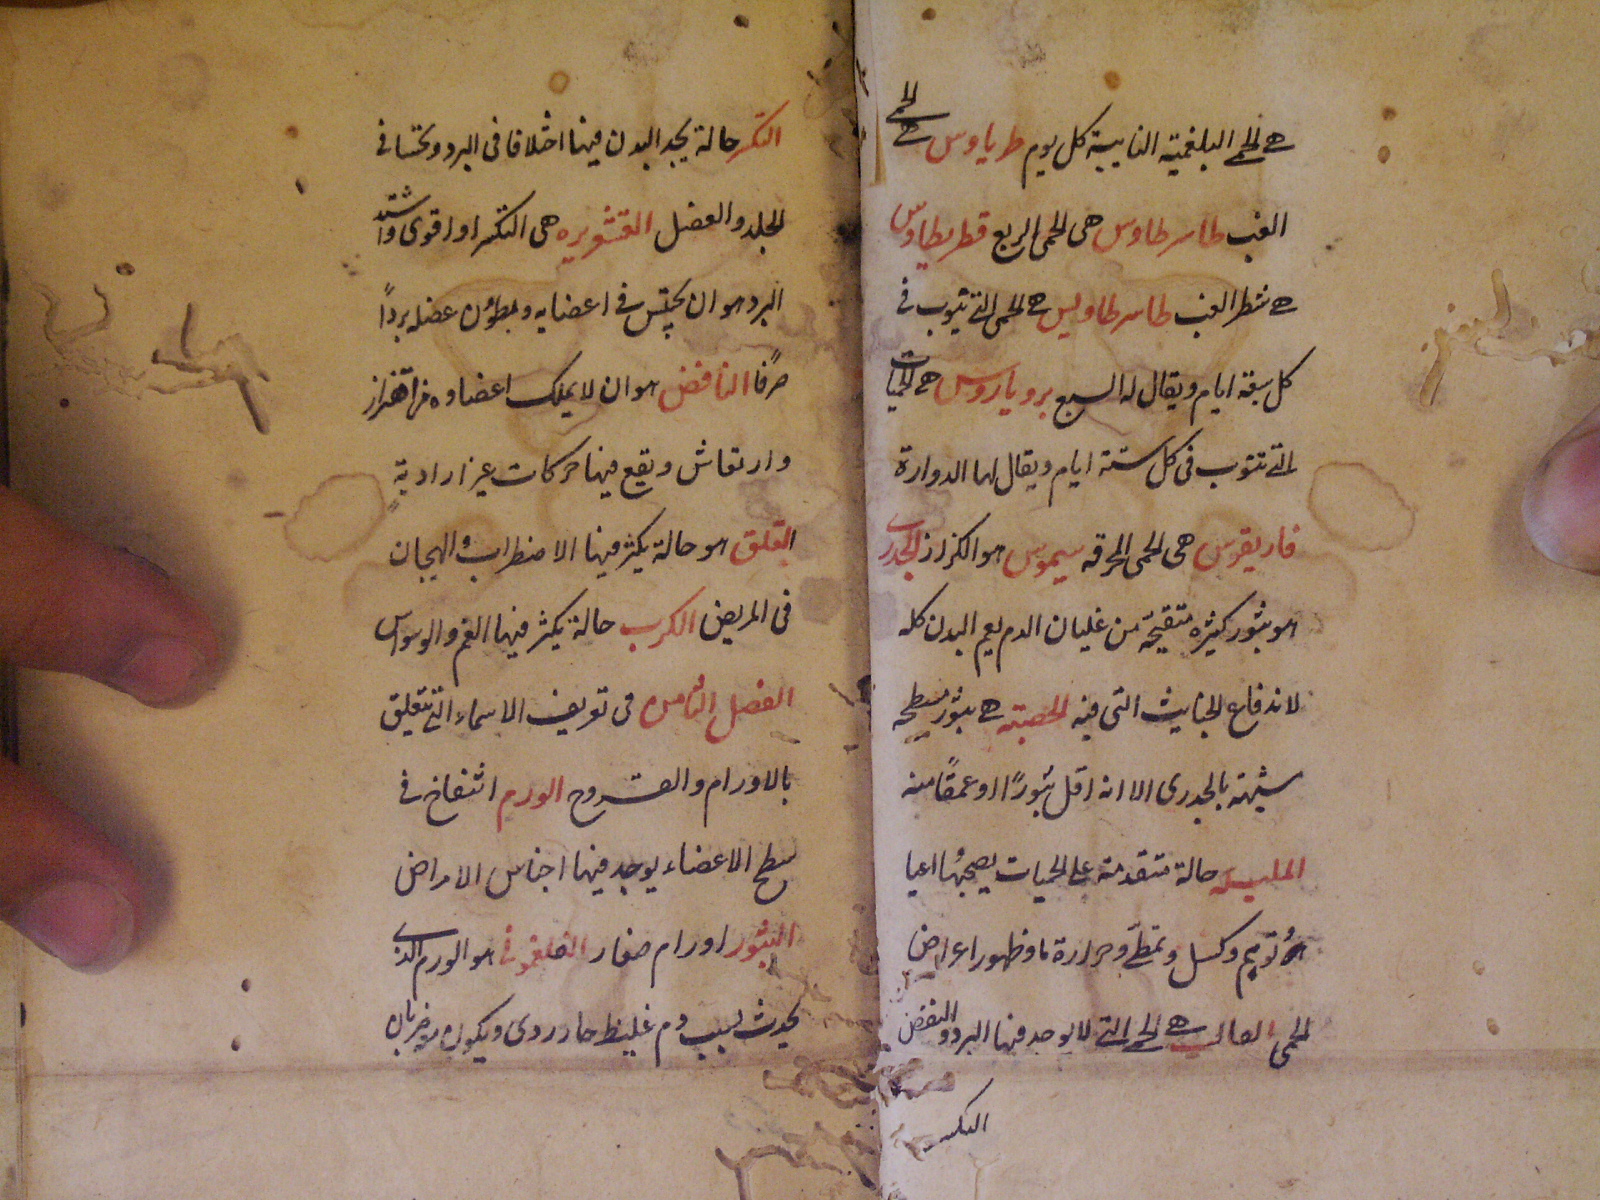 هي الحمى البلغمية النايبة كل يوم طرياوس هي الحمى
الغب طاسرطاوس هي الحمى الربع قطريطاوس
هي شطر الغب طاسرطاويس هي الحمى التي تنوب في
كل سبعة ايام ويقال له السبع بروياروس هي الحميات
التي تنوب في كل ستة ايام ويقال لها الدوارة
فاريقوس هي الحمى المحرقه سيموس هو الكزاز الجدري
هو بثور كثيره متقيحة من غليان الدم يعم البدن كله
لاندفاع الخبايث التي فيه الحصبته هي بثور مسطحه
شبيهته بالجدرى الا انه اقل بثورًا او عمقًا منه
المليله حالة متقدمة على الحميات يصحبها اعيا
وكسل وتمطي وحرارة ما وظهور اعراض
الحمى هي الحمى التي لا يوجد فيها البرد والنفض
التكسر
التكسر حالة يجد البدن فيها اختلافا في البرد ونخسا في
الجلد والعضل القشعريره هي التكسر او اقوى واشتد
البرد هو ان يحتبس في اعضايه وبطون عضله بردًا
صرفًا النافض هو ان لا يملك اعضاوه من اهتزاز
وارتعاش ويقع فيها حركات غير ارادية
القلق هو حالة يكثر فيها الاضطراب والهيجان
في المريض الكرب حالة يكثر فيها الغم والوسواس
الفصل الثامن في تعريف الاسماء التي تتعلق
بالاورام والقروح الورم انتفاخ في
سطح الاعضاء يوجد فيها اجناس الامراض
البثور اورام صغار الفلغموني هو الورم الذي
يحدث بسبب دم غليظ حاد ردى ويكون ضربان